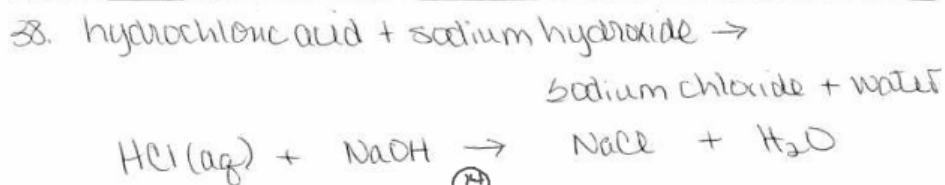 38. hydrochloric acid + sodium hydroxide →
sodium chloride + water
HCl(aq) + NaOH → NaCl + H₂O